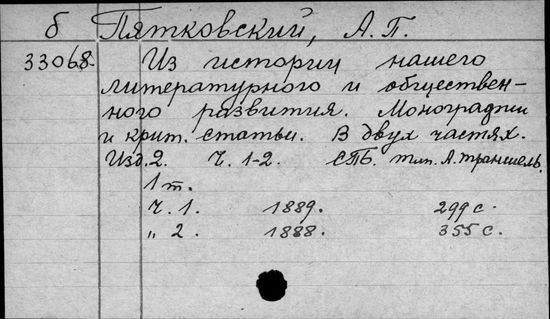 б Пятковский, А.П.
33068. Из истории нашего
литературного и обществен-
ного развития. Монографии
и крит. статьи. В двух частях.
Изд. 2. Ч. 1-2. СПб. тип. А. Траншель.
1 т.
Ч. 1. 1889. 299 с.
„ 2. 1888. 355 с.